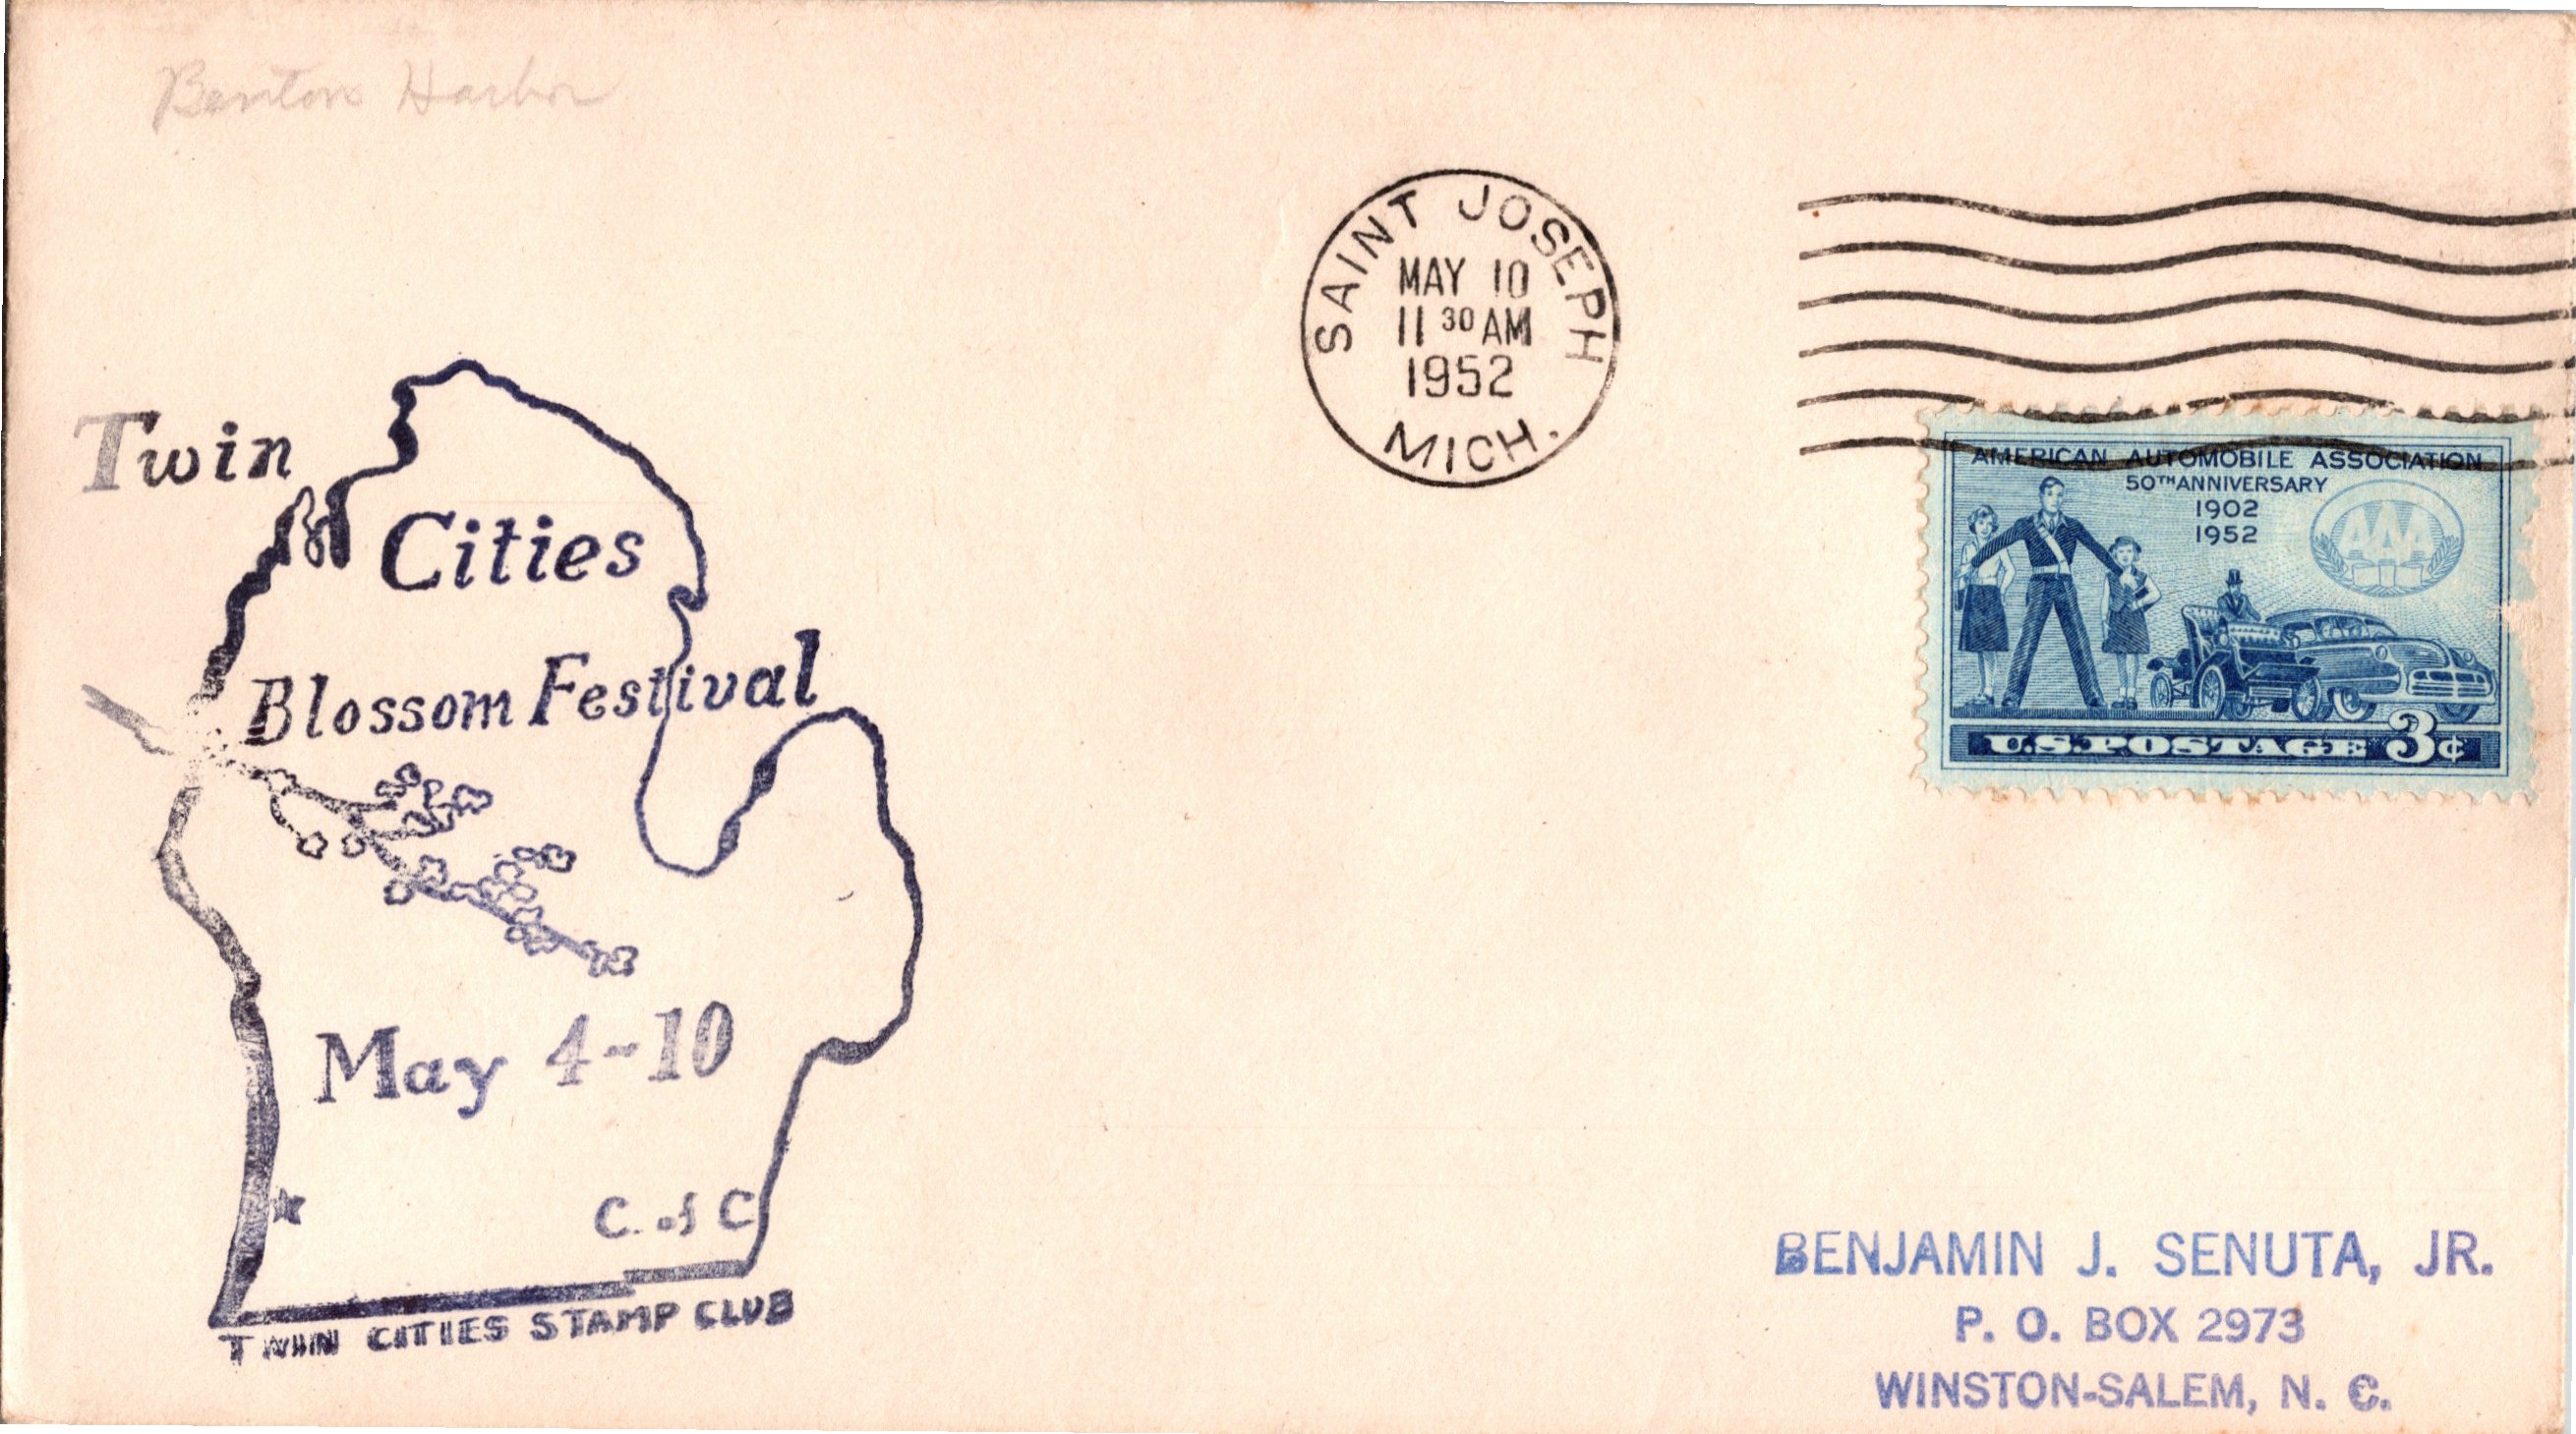 Benton Harbor
SAINT JOSEPH
MAY 10
11 30 AM
1952
MICH.
AMERICAN AUTOMOBILE ASSOCIATION
50TH ANNIVERSARY
1902
1952
AAA
U.S. POSTAGE 3¢
Twin
Cities
Blossom Festival
May 4-10
C. of C
TWIN CITIES STAMP CLUB
BENJAMIN J. SENUTA, JR.
P. O. BOX 2973
WINSTON-SALEM, N. C.